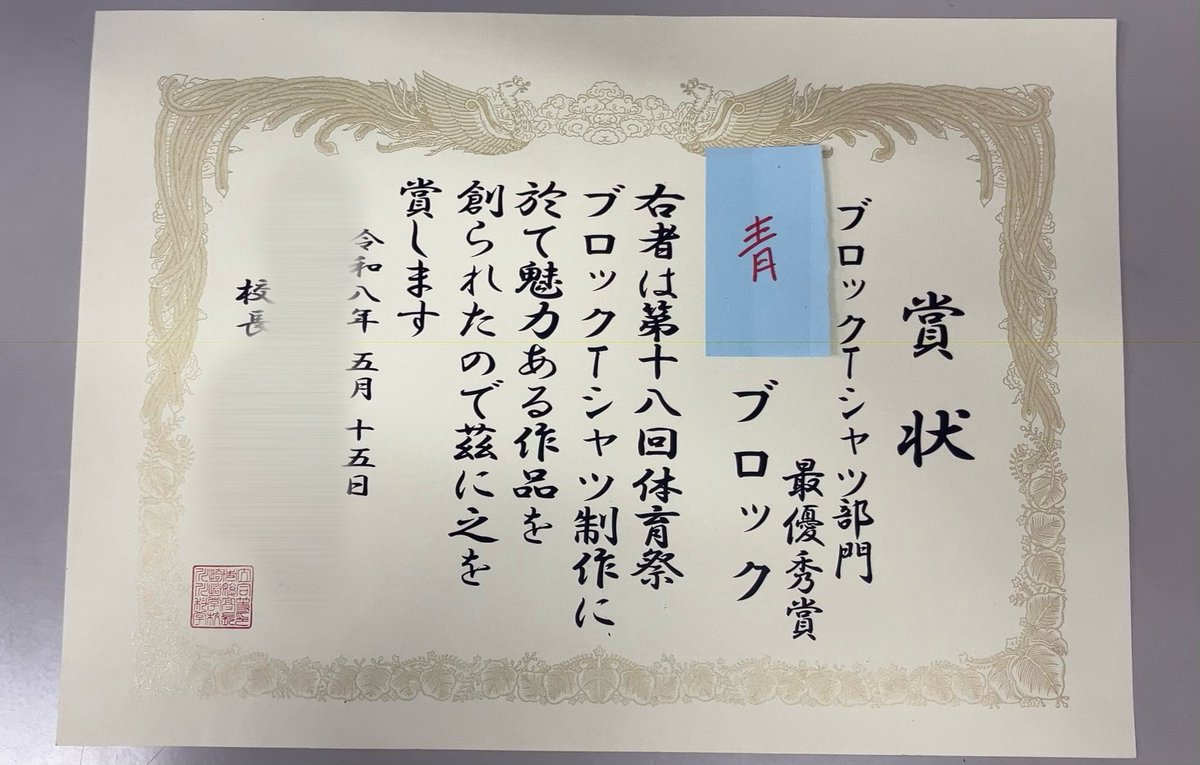 賞状
ブロックTシャツ部門
最優秀賞
青 ブロック
右者は第十八回体育祭
ブロックTシャツ制作に
於て魅力ある作品を
創られたので茲に之を
賞します
令和八年 五月 十五日
校長